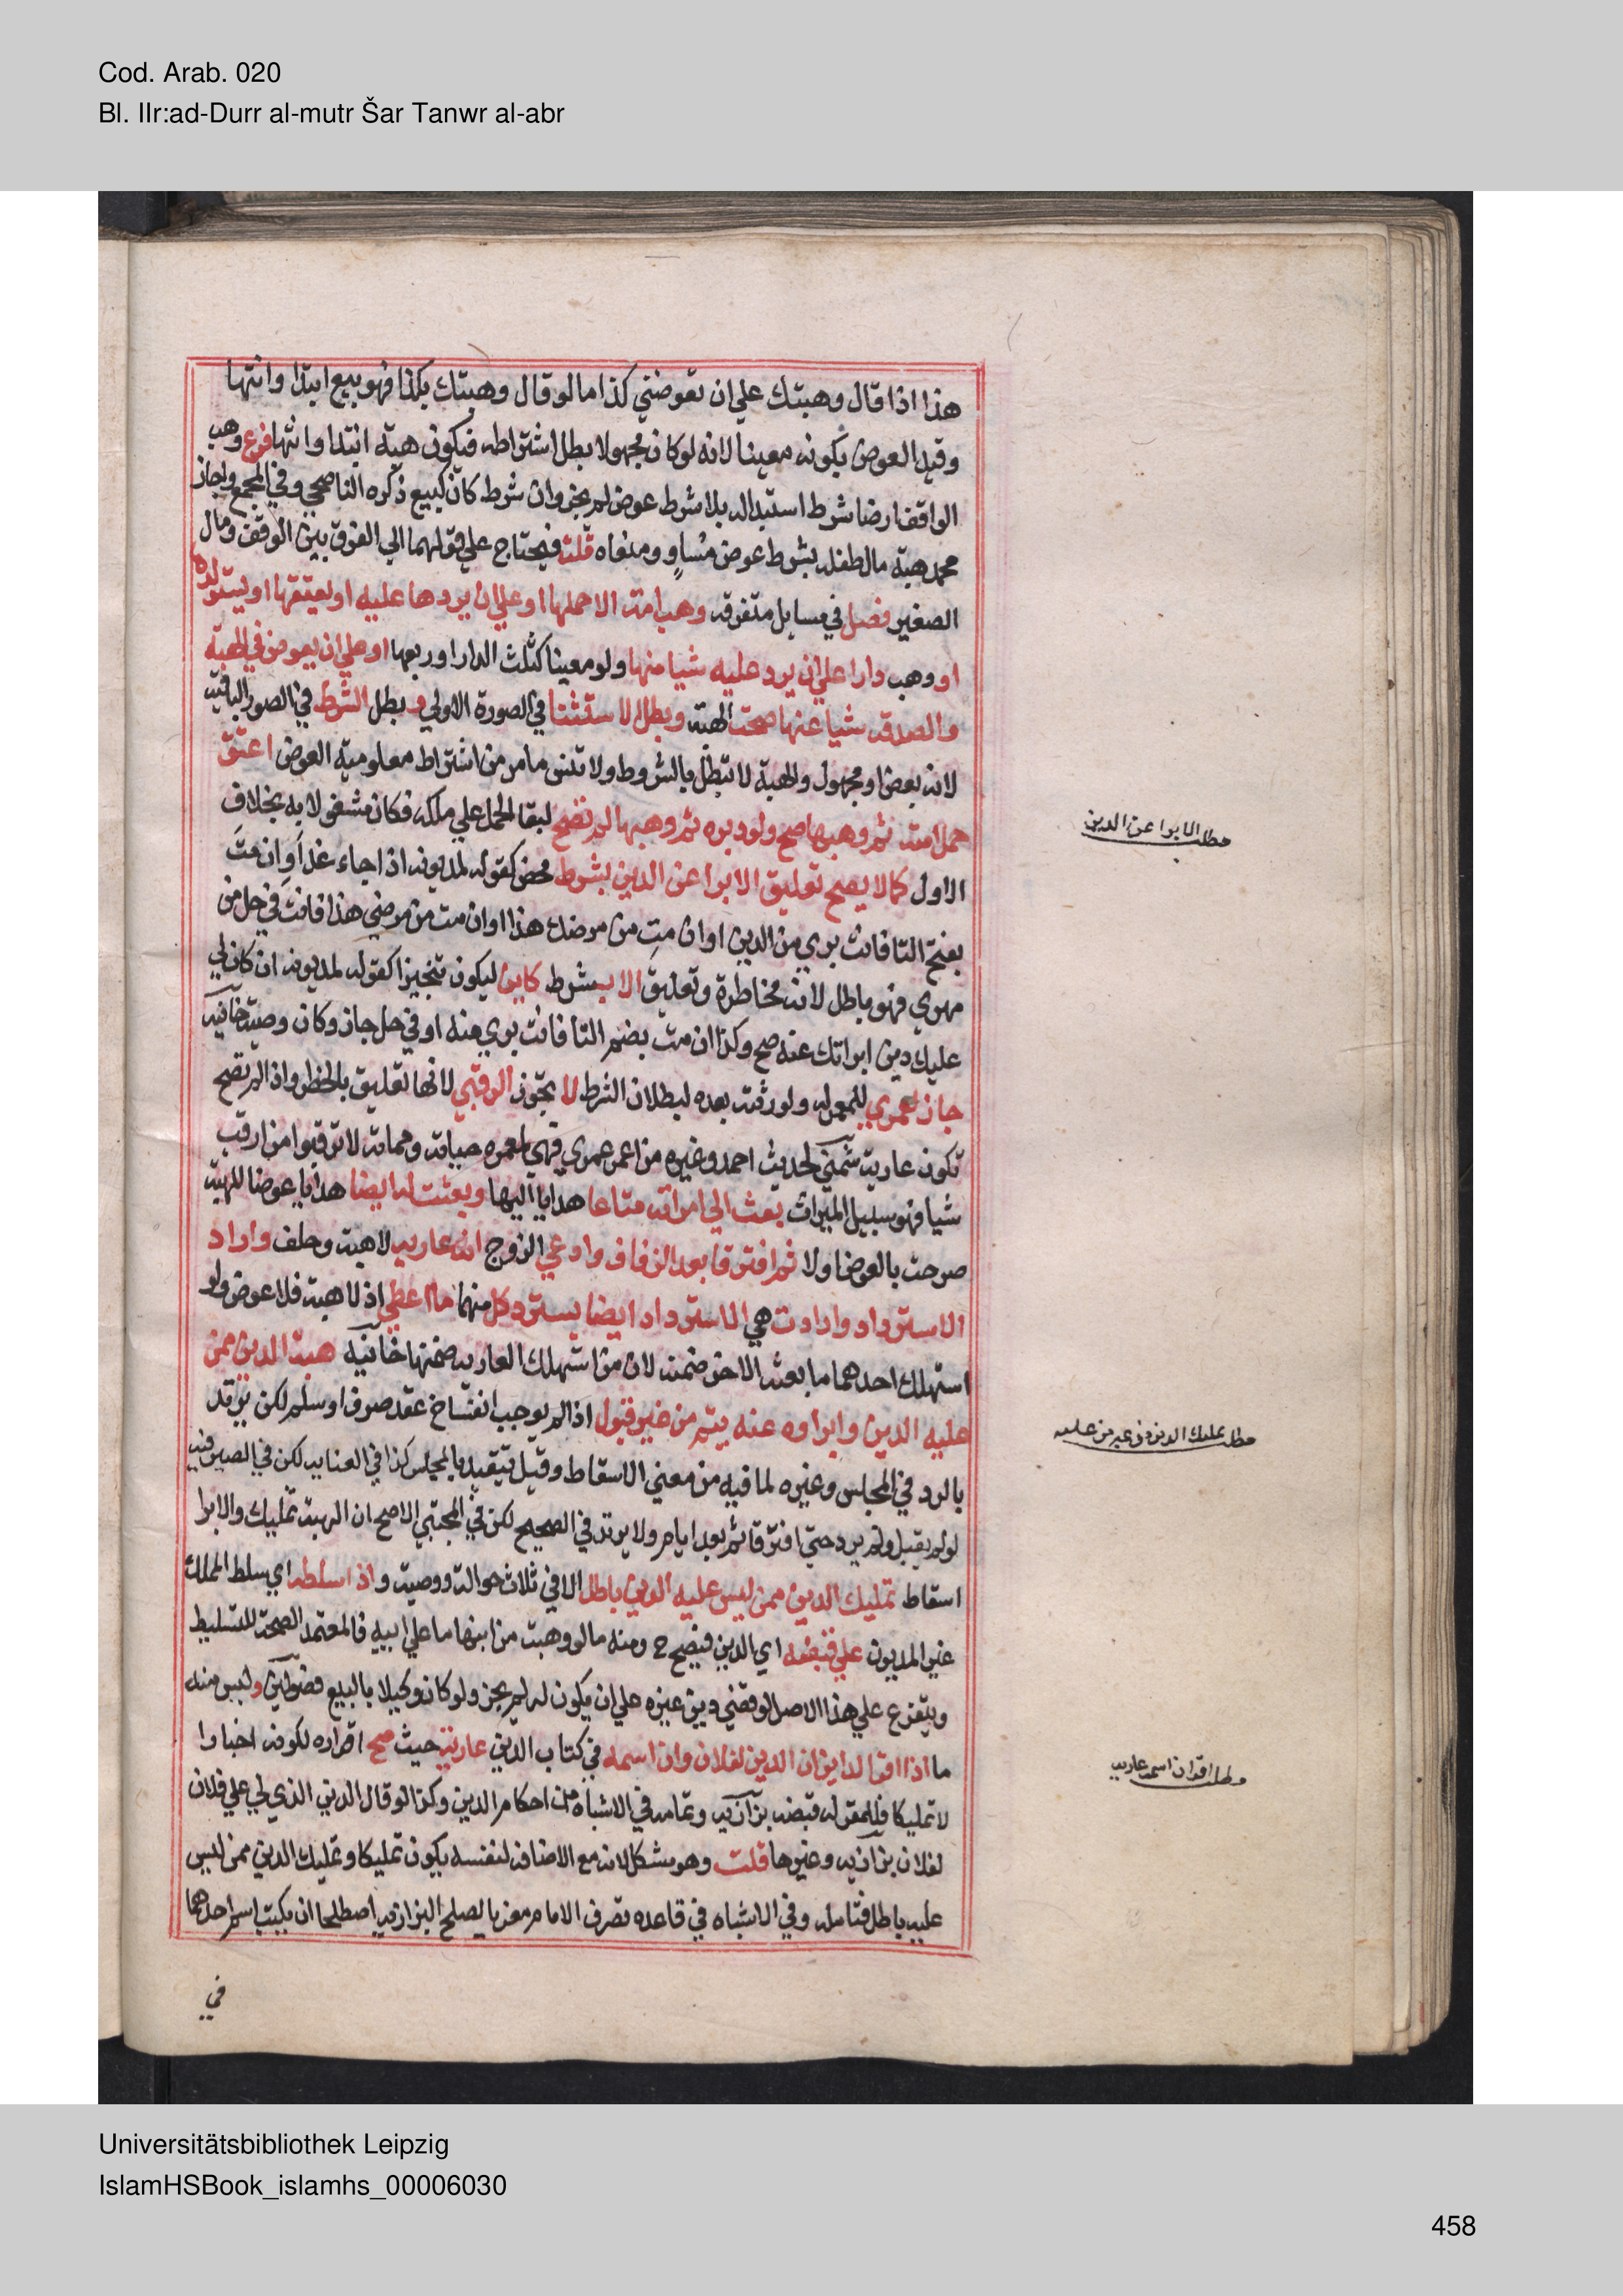 Cod. Arab. 020
Bl. IIr:ad-Durr al-mutr Šar Tanwr al-abr
هذا اذا قال وهبتك علي ان تعوضني كذا اما لو قال وهبتك بكذا فهو بيع ابتدا وانتها
وقيد العوض بكونه معينا لانه لو كان مجهولا بطل اشتراطه فيكون هبة ابتدا وانتها فرع وهب
الواقف ارضا شرط استبداله بلا شرط عوض لم يجز وان شرط كان كبيع ذكره الناصحي وفي المجمع واجاز
محمد هبة مال طفله بشرط عوض مساو ومنعاه قلت فيحتاج علي قولهما الي الفرق بين الوقف ومال
الصغير فصل في مسايل متفرقه وهب امة الا حملها او علي ان يردها عليه او يعتقها او يستولدها
او وهب دارا علي ان يرد عليه شيا منها ولو معينا كثلث الدار او ربعها او علي ان يعوض في الهبة
والصدقه شيا عنها صحت الهبة وبطل الاستثنا في الصورة الاولي و بطل الشرط في الصور الباقية
لانه بعض او مجهول والهبة لا تبطل بالشروط ولا تنس ما مر من اشتراط معلومية العوض اعتق
حمل امته ثم وهبها صح ولو دبره ثم وهبها لم تصح لبقا الحمل علي ملكه فكان مشغولا به بخلاف
الاول كما لا يصح تعليق الابرا عن الدين بشرط محض كقوله لمديونه اذا جاء غد او ان مت
بفتح التا فانت بري من الدين او ان مت من مرضك هذا او ان مت من مرضي هذا فانت في حل من
مهري فهو باطل لانه مخاطرة وتعليق الا بشرط كاين ليكون تنجيزا كقوله لمديونه ان كان لي
عليك دين ابراتك عنه صح وكذا ان مت بضم التا فانت بري منه او في حل جاز وكان وصية خانيه
جاز عمري للمعمر له ولورثته بعده لبطلان الشرط لا تجوز الرقبي لانها تعليق بالخطر واذا لم تصح
تكون عارية شمني لحديث احمد وغيره من اعمر عمري فهي لمعمره حياته ومماته لا ترقبوا من ارقب
شيا فهو سبيل الميراث بعث الي امراته متاعا هدايا اليها وبعثت له ايضا هدايا عوضا للهبة
صرحت بالعوض او لا ثم افترقا بعد الزفاف وادعي الزوج انه عارية لا هبة وحلف واراد
الاسترداد وارادت هي الاسترداد ايضا يسترد كل منهما ما اعطي اذ لا هبة فلا عوض ولو
استهلك احدهما ما بعثه الاخر ضمنه لان من استهلك العارية ضمنها خانيه هبة الدين ممن
عليه الدين وابراوه عنه يتم من غير قبول اذا لم يوجب انفساخ عقد صرف او سلم لكن يرتد
بالرد في المجلس وغيره لما فيه من معني الاسقاط وقيل يتقيد بالمجلس كذا في العنايه لكن في الصيرفيه
لو لم يقبل ولم يرد حتي افترقا ثم بعد ايام رد لا يرتد في الصحيح لكن في المجتبي الاصح ان الهبة تمليك والابرا
اسقاط تمليك الدين ممن ليس عليه الدين باطل الا في ثلاث حوالة ووصية و اذا سلطه اي سلط المملك
غير المديون علي قبضه اي الدين فيصح ح ومنه ما لو وهبت من ابنها ما علي ابيه فالمعتمد الصحة للتسليط
ويتفرع علي هذا الاصل لو قضي دين غيره علي ان يكون له لم يجز ولو كان وكيلا بالبيع فصولين وليس منه
ما اذا اقر الداين ان الدين لفلان وان اسمه في كتاب الدين عارية حيث صح اقراره لكونه اخبارا
لا تمليكا فللمقر له قبضه بزازيه وتمامه في الاشباه من احكام الدين وكذا لو قال الدين الذي لي علي فلان
لفلان بزازيه وغيرها قلت وهو مشكل لانه مع الاضافه لنفسه يكون تمليكا وتمليك الدين ممن ليس
عليه باطل فتامله وفي الاشباه في قاعده تصرف الامام معزيا لصلح البزازيه اصطلحا ان يكتب اسم احدهما
في
مطلب الابرا عن الدين
مطلب تمليك الدين من غير من عليه
مطلب اقر ان اسمه عاريه
Universitätsbibliothek Leipzig
IslamHSBook_islamhs_00006030
458